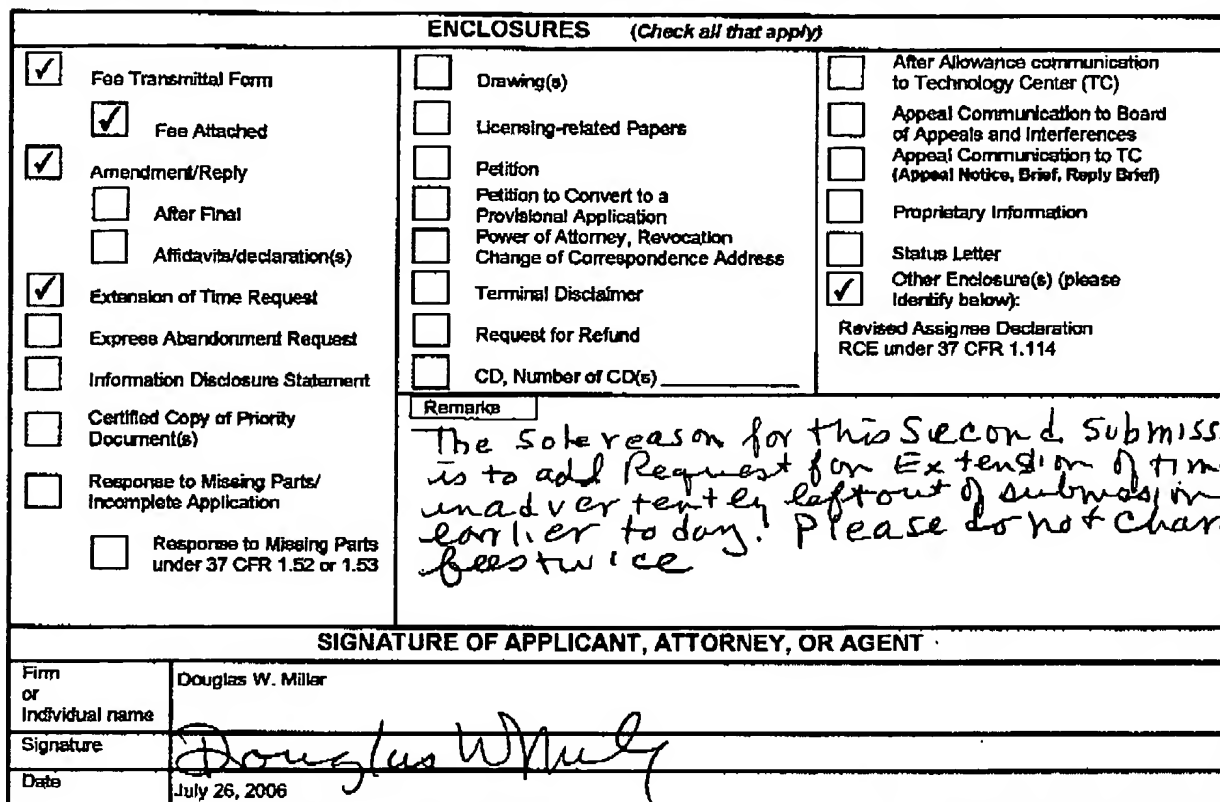 ENCLOSURES (Check all that apply)
✓ Fee Transmittal Form
✓ Fee Attached
✓ Amendment/Reply
After Final
Affidavits/declaration(s)
✓ Extension of Time Request
Express Abandonment Request
Information Disclosure Statement
Certified Copy of Priority
Document(s)
Response to Missing Parts/
Incomplete Application
Response to Missing Parts
under 37 CFR 1.52 or 1.53
Drawing(s)
Licensing-related Papers
Petition
Petition to Convert to a
Provisional Application
Power of Attorney, Revocation
Change of Correspondence Address
Terminal Disclaimer
Request for Refund
CD, Number of CD(s)
After Allowance communication
to Technology Center (TC)
Appeal Communication to Board
of Appeals and Interferences
Appeal Communication to TC
(Appeal Notice, Brief, Reply Brief)
Proprietary Information
Status Letter
✓ Other Enclosure(s) (please
Identify below):
Revised Assignee Declaration
RCE under 37 CFR 1.114
Remarks
The sole reason for this Second Submiss
is to add Request for Extension of tim
inadvertently left out of submission
earlier today. Please do not char
fees twice
SIGNATURE OF APPLICANT, ATTORNEY, OR AGENT
Firm
or
Individual name
Douglas W. Miller
Signature
Douglas W
Date
July 26, 2006